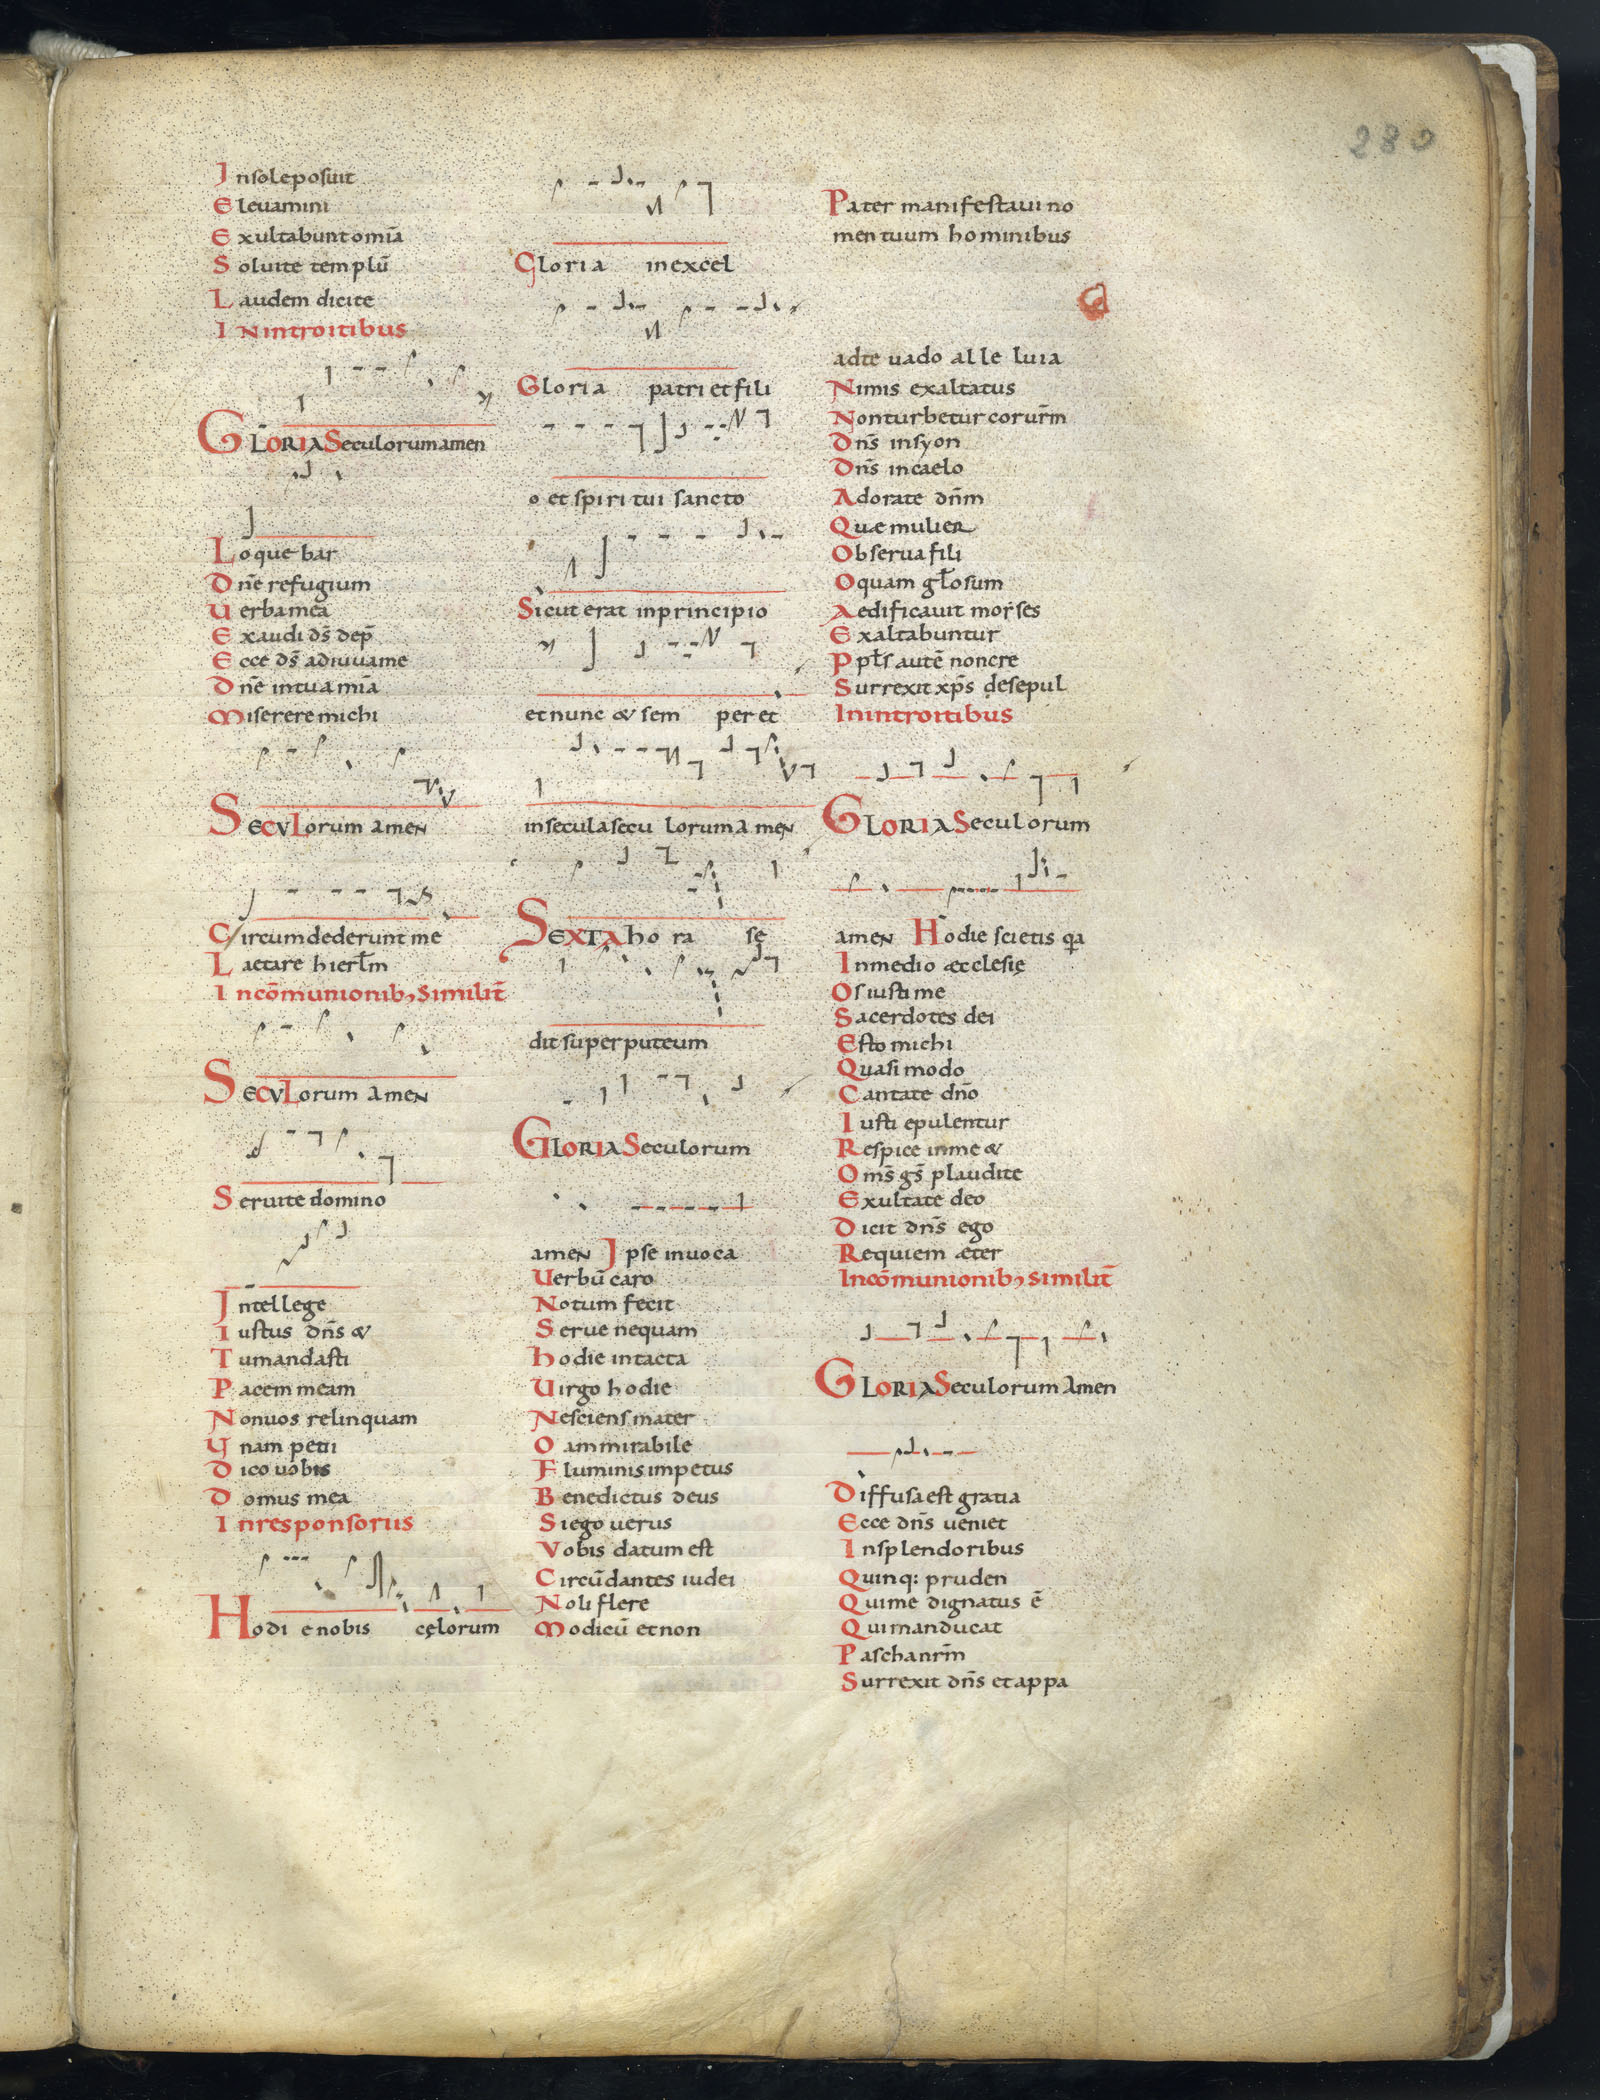 280
Insoleposuit
Eleuamini
Exultabuntomīa
Soluite templū
Laudem dicite
INintroitibus
GLORIASeculorumamen
Loquebar
Dn̄e refugium
Uerbamea
Exaudi ds̄ dep̄
Ecce ds̄ adiuuame
Dn̄e intuamīa
Misereremichi
SECVLorum amen
Circumdederuntme
Laetare hierłm
Incōmunionib, similit̄
SECVLorum amen
Seruite domino
Intellege
Iustus dn̄s &
Tumandasti
Pacem meam
Nonuos relinquam
Ynam petii
Dico uobis
Domus mea
Inresponsoriis
Hodi enobis cęlorum
Gloria inexcel
Gloria patri et fili
o et spiri tui sancto
Sicut erat inprincipio
etnunc & sem per et
inseculasecu lorum a men
SEXTA ho ra se
dit super puteum
GLORIASeculorum
amen Ipse inuoca
Uerbū caro
Notum fecit
Serue nequam
Hodie intacta
Uirgo hodie
Nesciens mater
O ammirabile
Fluminis impetus
Benedictus deus
Siego uerus
Vobis datum est
Circūdantes iudei
Noli flere
Modicū etnon
Pater manifestaui no
men tuum hominibus
adte uado alle luia
Nimis exaltatus
Nonturbetur corur̄m
Dn̄s insyon
Dn̄s incaelo
Adorate dn̄m
Quae mulier
Obserua fili
Oquam gło̅sum
Aedificauit moyses
Exaltabuntur
Ppłs autē noncre
Surrexit xp̄s desepul
Inintroitibus
GLORIASeculorum
amen Hodie scietis qa
Inmedio aecclesię
Os iusti me
Sacerdotes dei
Esto michi
Quasi modo
Cantate dn̄o
Iusti epulentur
Respice inme &
Om̄s gs̄ plaudite
Exultate deo
Dicit dn̄s ego
Requiem aeter
Incōmunionib, similit̄
GLORIASeculorum Amen
Diffusa est gratia
Ecce dn̄s ueniet
Insplendoribus
Quinq: pruden
Quime dignatus ē
Qui manducat
Paschanr̄m
Surrexit dn̄s et appa